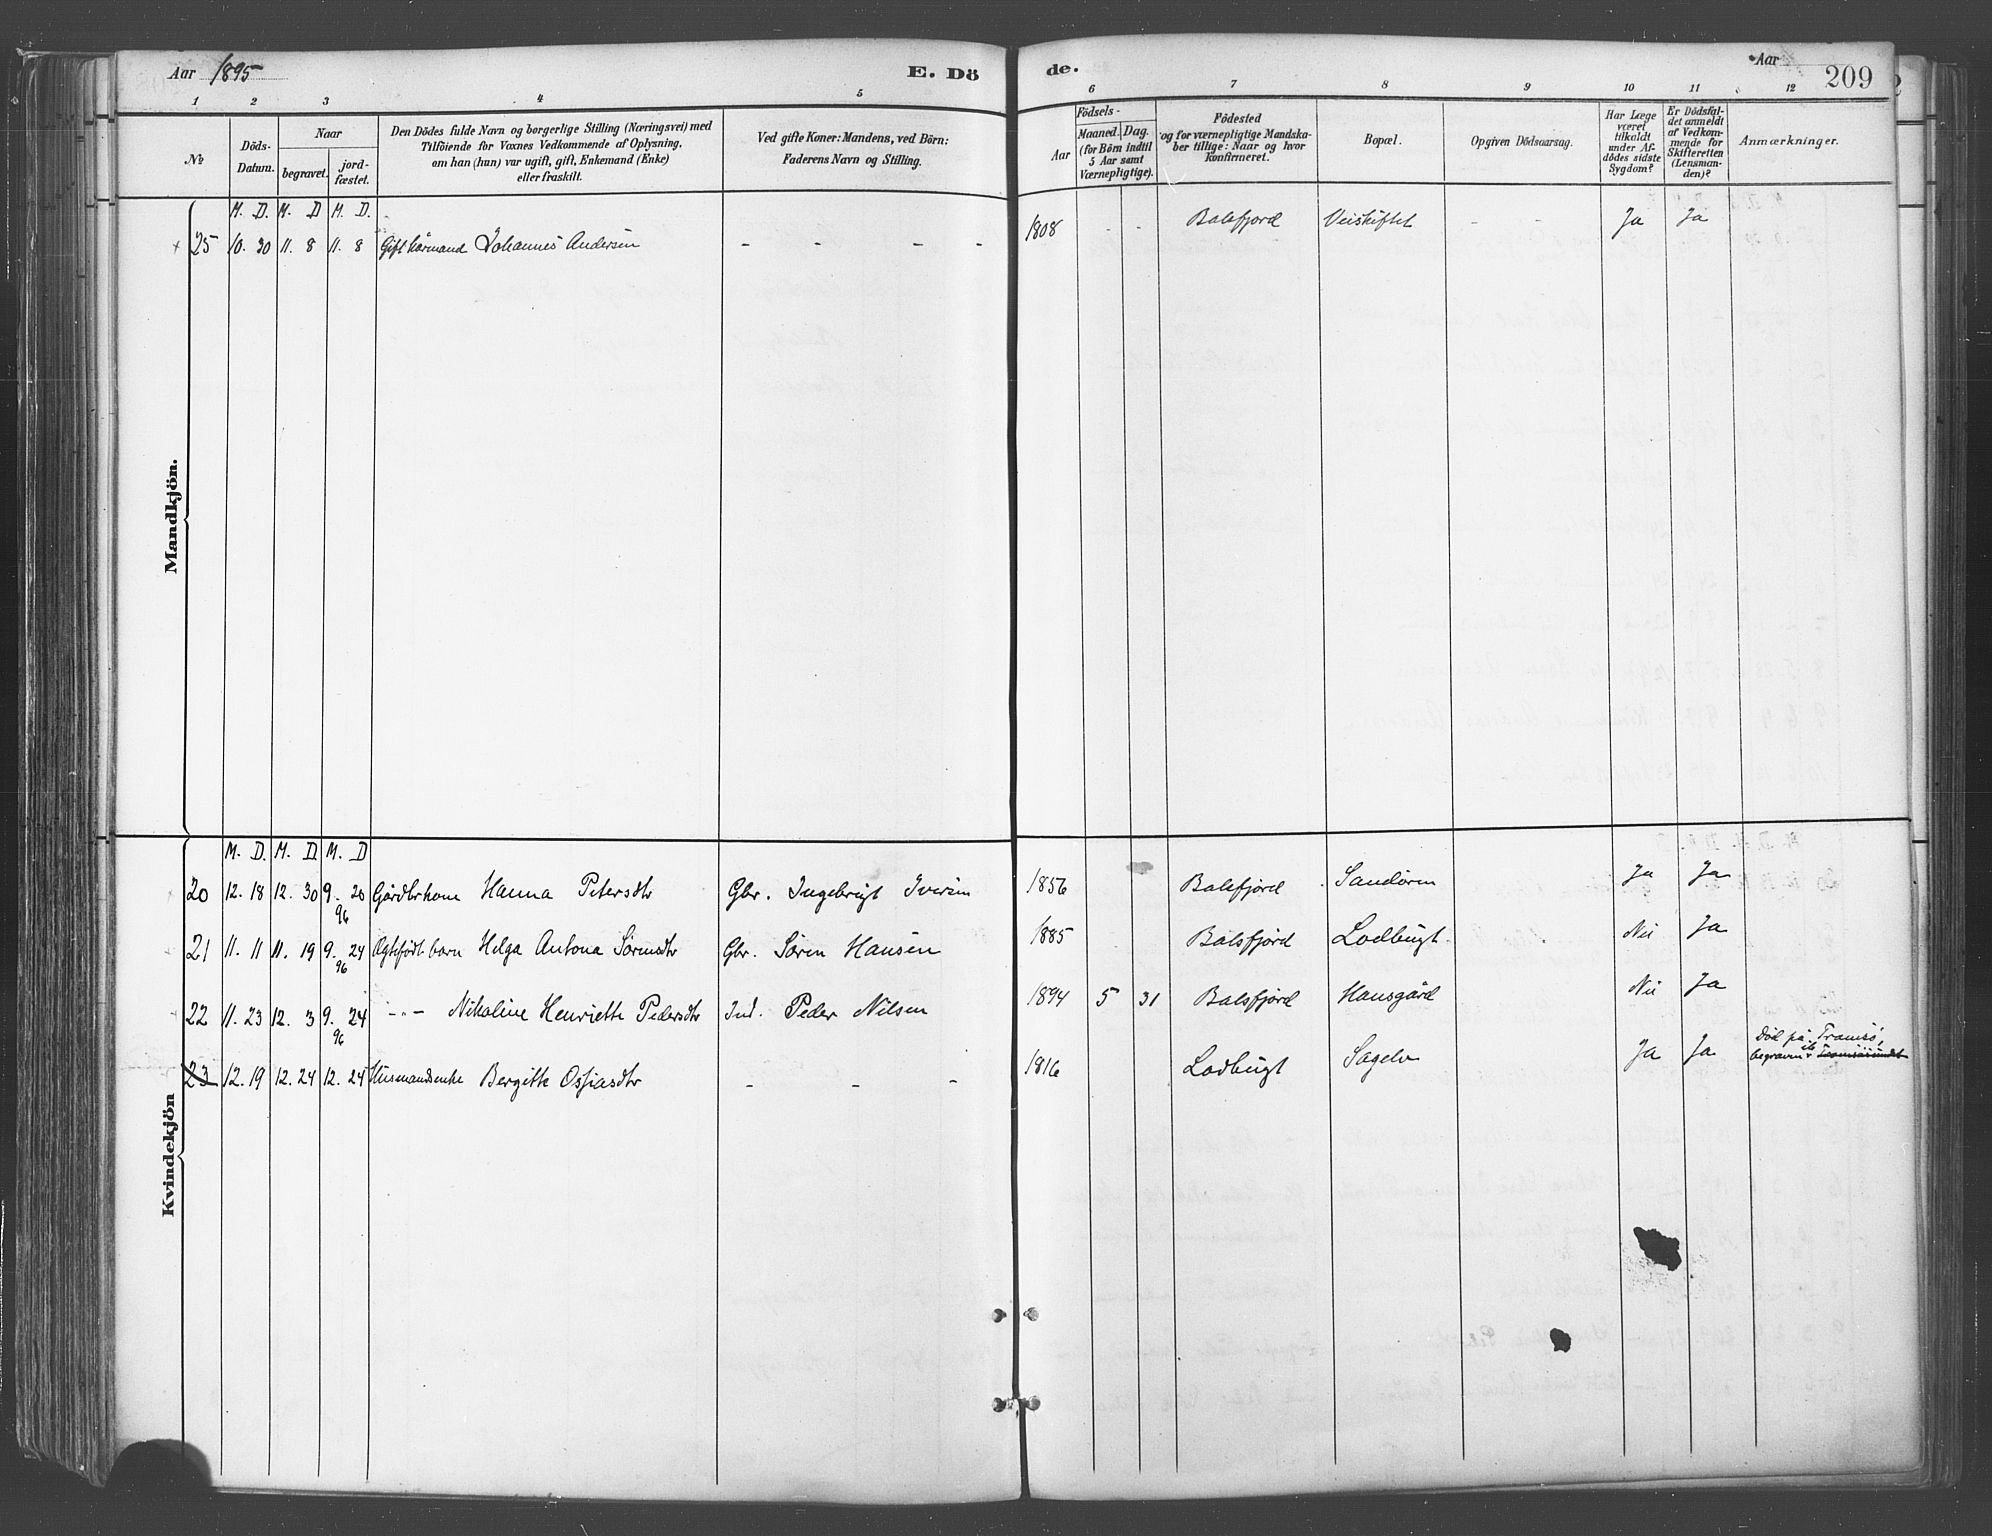 Aar 1895
E. Dö
de.
Aar
209
1 2 3 4 5 6 7 8 9 10 11 12
№
Döds-
Datum.
Naar
begravet.
jord-
fæstet.
Den Dödes fulde Navn og borgerlige Stilling (Næringsvei) med
Tilföiende for Voxnes Vedkommende af Oplysning,
om han (hun) var ugift, gift, Enkemand (Enke)
eller fraskilt.
Ved gifte Koner: Mandens, ved Börn:
Faderens Navn og Stilling.
Födsels-
Aar
Maaned. Dag.
(for Börn indtil
5 Aar samt
Værnepligtige).
Födested
og for værnepligtige Mandska-
ber tillige: Naar og hvor
konfirmeret.
Bopæl.
Opgiven Dödsaarsag.
Har Læge
været
tilkaldt
under Af-
dödes sidste
Sygdom?
Er Dödsfal-
det anmeldt
af Vedkom-
mende for
Skifteretten
(Lensman-
den)?
Anmærkninger.
Mandkjön.
M. D. M. D M. D.
25 10. 30 11. 8 11. 8 Gift kårmand Johannes Andersen - - - - 1808 - - Balsfjord Veiskiftet - - Ja Ja
Kvindekjön
M. D. M. D M. D
20 12. 18 12. 30 9. 20 Gårdbrkone Hanna Petersdtr Gbr. Ingebrigt Iversen 1856 Balsfjord Sandøren Ja Ja
96
21 11. 11 11. 19 9. 24 Ægtefødt barn Helga Antona Sørensdtr Gbr. Søren Hansen 1885 Balsfjord Lodbugt Nei Ja
96
22 11. 23 12. 3 9. 24 -"- Nikoline Henriette Pedersdtr Ind. Peder Nilsen 1894 5 31 Balsfjord Hansgård Nei Ja
96
23 12. 19 12. 24 12. 24 Husmandsenke Bergitte Ossiasdtr - - - 1816 Lodbugt Sagelv Ja Ja Död på Tromsö,
begraven Tromsösundet